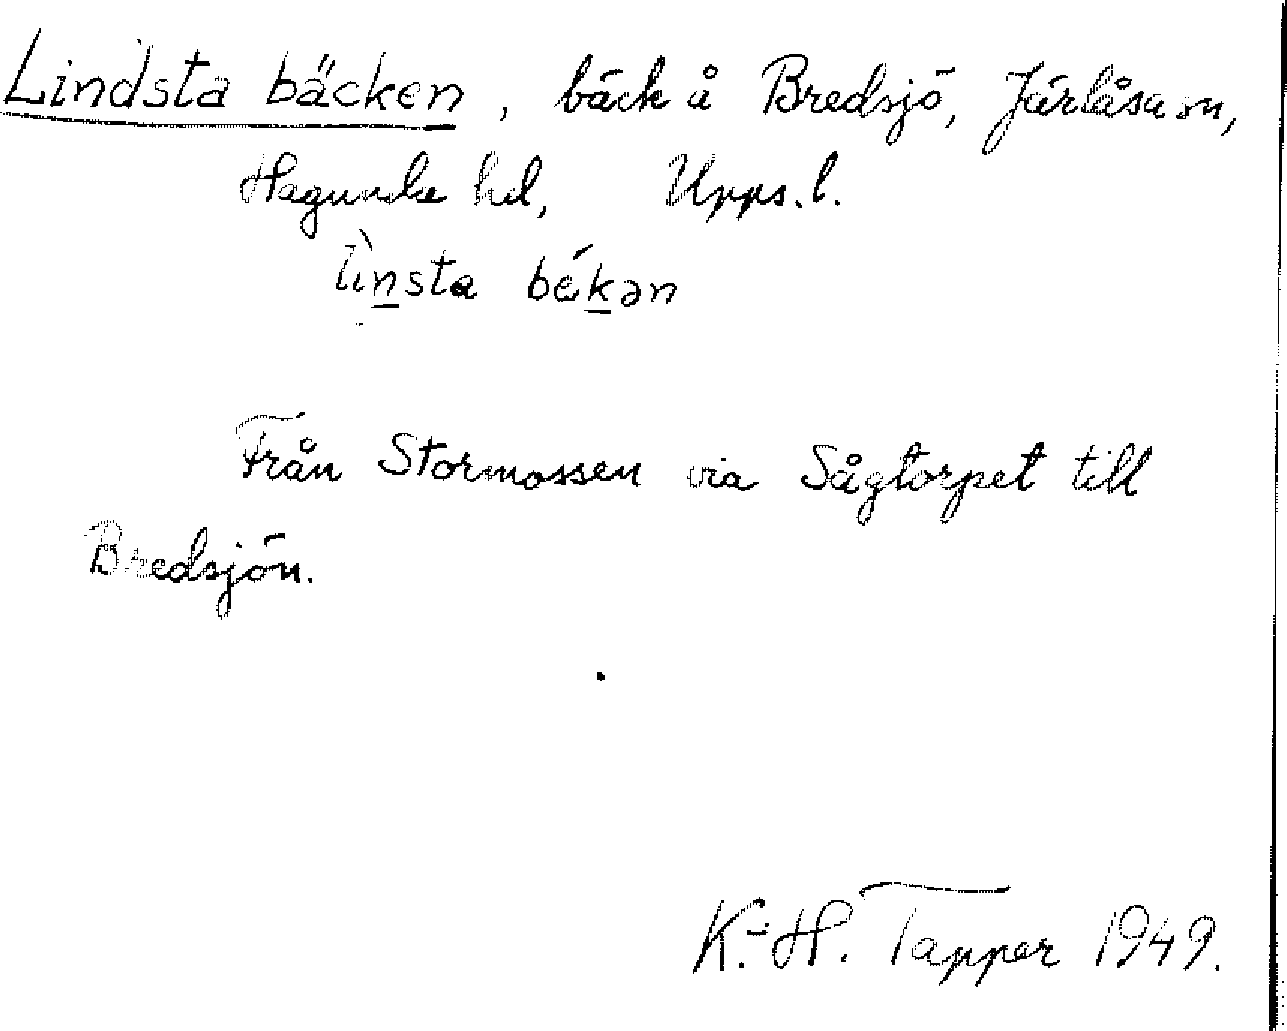 Lindsta bäcken, bäck å Bredsjö, Järlåsa sn,
Hagunda hd, Upps. l.
lìn̲sta bék̲ən
Från Stormossen via Sågtorpet till
Bredsjön.
K.-H. Tapper 1949.